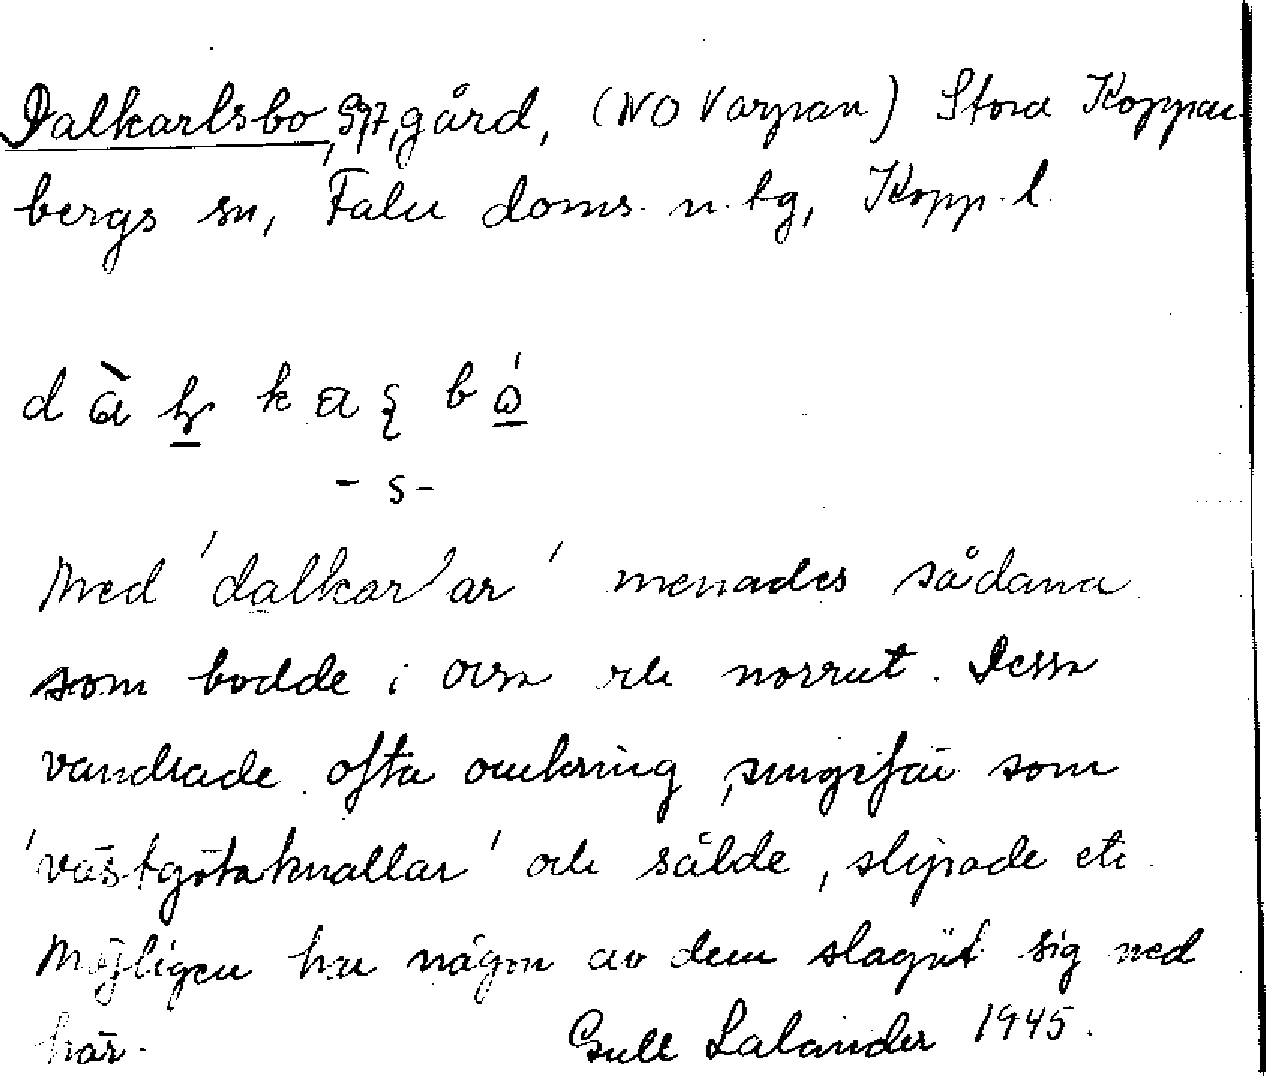 Dalkarlsbo, gård, (NO Varpan) Stora Koppar-
bergs sn, Falu doms. n. tg, Kopp. l.
- s -
Med 'dalkarlar' menades sådana
som bodde i Orsa och norrut. Dessa
vandrade ofta omkring, ungefär som
'västgötaknallar' och sålde, slipade etc.
Möjligen har någon av dem slagit sig ned
här. Gull Lalander 1945.